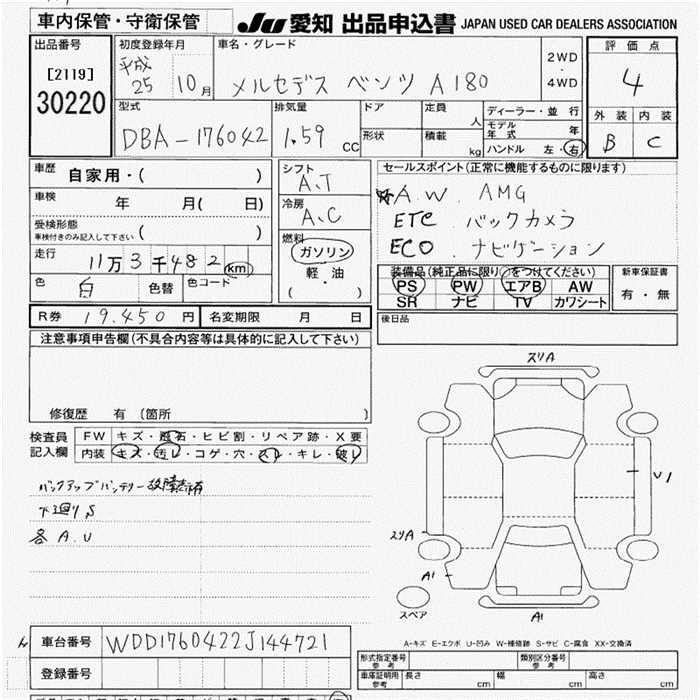 車内保管・守衛保管
JU 愛知 出品申込書 JAPAN USED CAR DEALERS ASSOCIATION
出品番号 初度登録年月 車名・グレード 2WD ・ 4WD 評価点
[2119] 平成25 10月 メルセデス ベンツ A180 4
30220 外装 内装
型式 排気量 ドア 定員 人 ディーラー・並行 B C
DBA-176042 1.59 cc 形状 積載 kg モデル年式 年
ハンドル 左・右
車歴 自家用・( ) シフト A.T セールスポイント(正常に機能するものに限ります)
車検 年 月( 日) 冷房 A.C A.W. AMG
受検形態 ( ) ETC. バックカメラ
車検付きのみ記入して下さい 燃料 ECO. ナビゲーション
走行 11万3千482 km ガソリン
軽・油
( )
色 白 色替 色コード
装備品(純正品に限り○をつけてください) 新車保証書
PS PW エアB AW 有・無
SR ナビ TV カワシート
R券 19.450円 名変期限 月 日 後日品
注意事項申告欄(不具合内容等は具体的に記入して下さい)
修復歴 有 (箇所 )
検査員記入欄 FW キズ・飛石・ヒビ割・リペア跡・X要
内装 キズ・汚レ・コゲ・穴・スレ・キレ・破レ
バックアップバッテリー故障表示有
下廻りS
各A.U
スリA
U1
スリA
A1
A1
スペア
A-キズ E-エクボ U-凹み W-補修跡 S-サビ C-腐食 XX-交換済
車台番号 WDD1760422J144721
登録番号
形式指定番号 参考 類別区分番号 参考
車庫証明用 参考 長さ cm 幅 cm 高さ cm